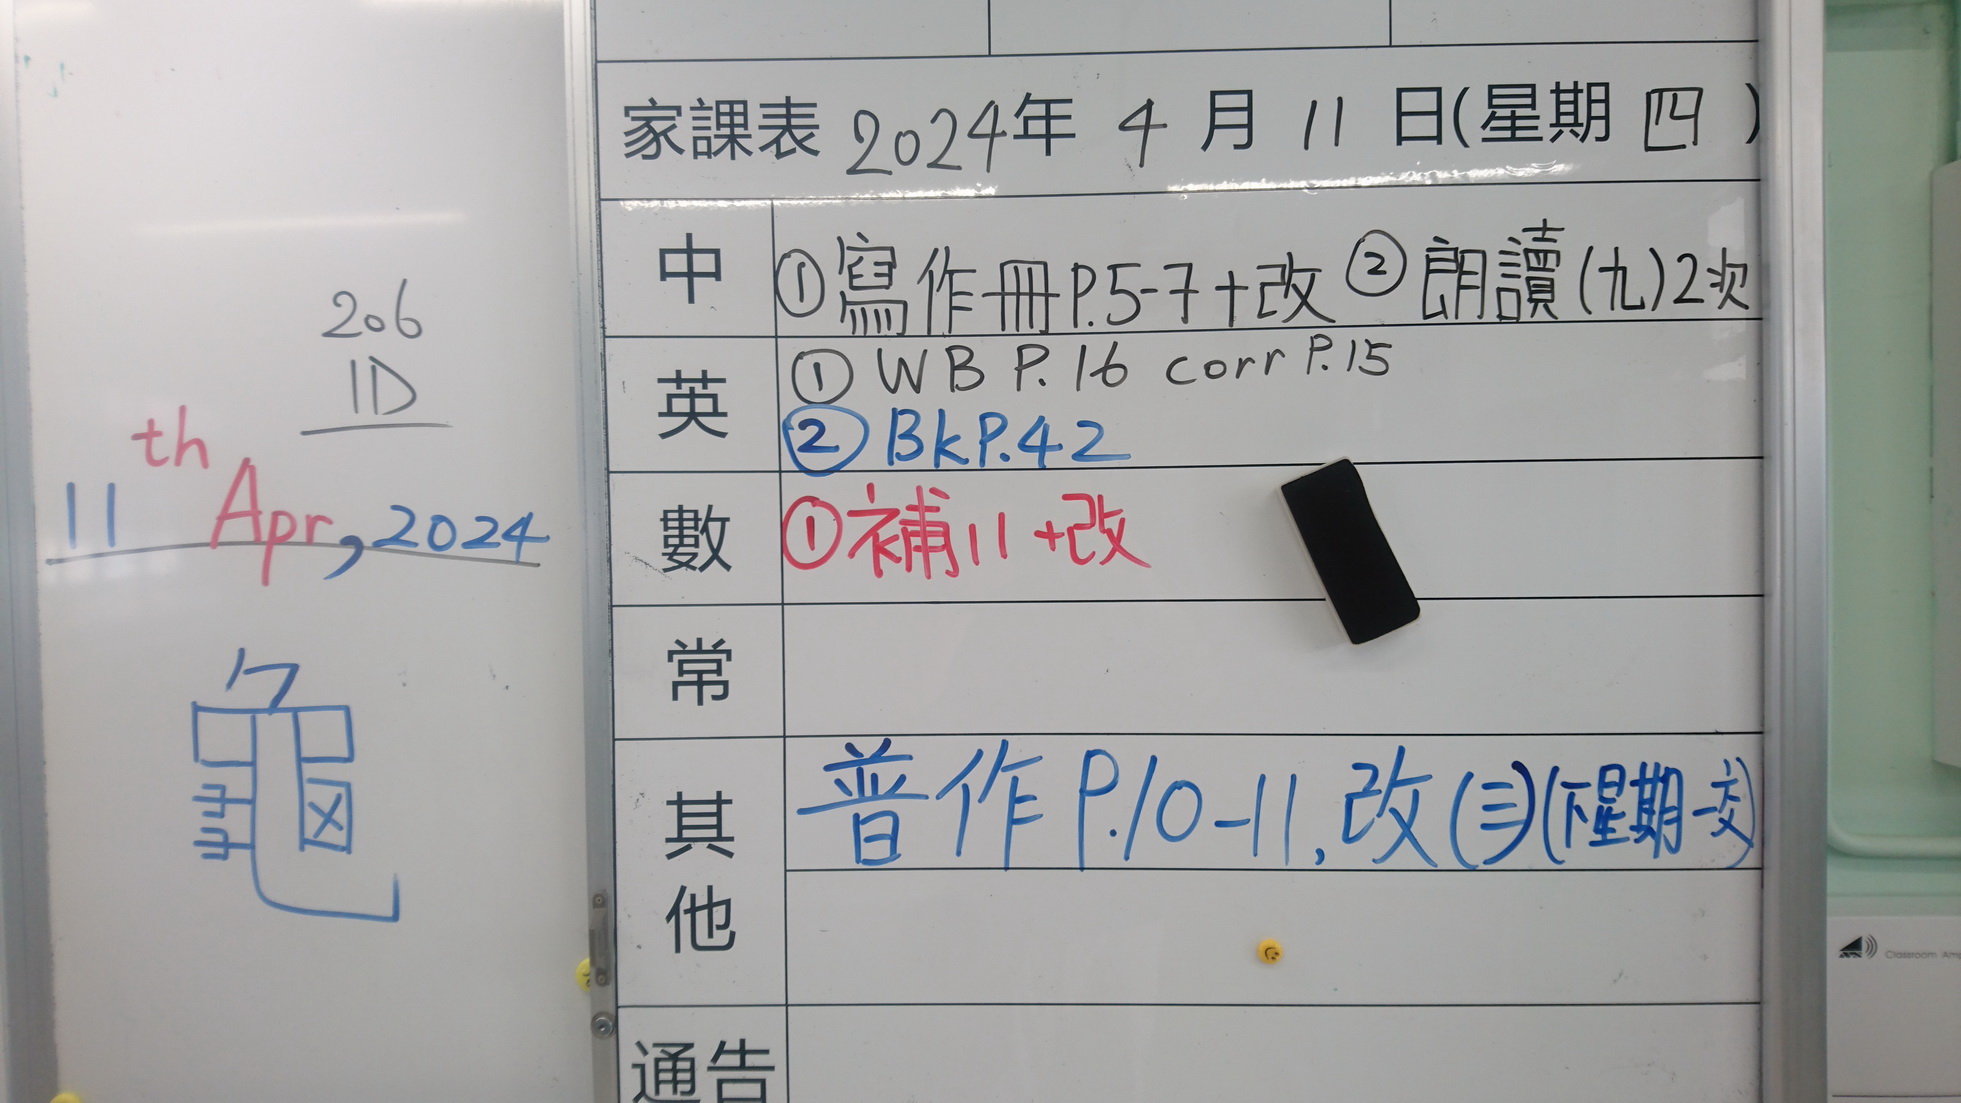 206
1D
11th Apr, 2024
龜
家課表 2024年 4 月 11 日(星期 四 )
中 ①寫作冊P.5-7+改 ②朗讀(九)2次
英 ① WB P.16 corr P.15
② BkP.42
數 ①補11+改
常
其他 普作P.10-11,改(三)(下星期一交)
通告
Classroom